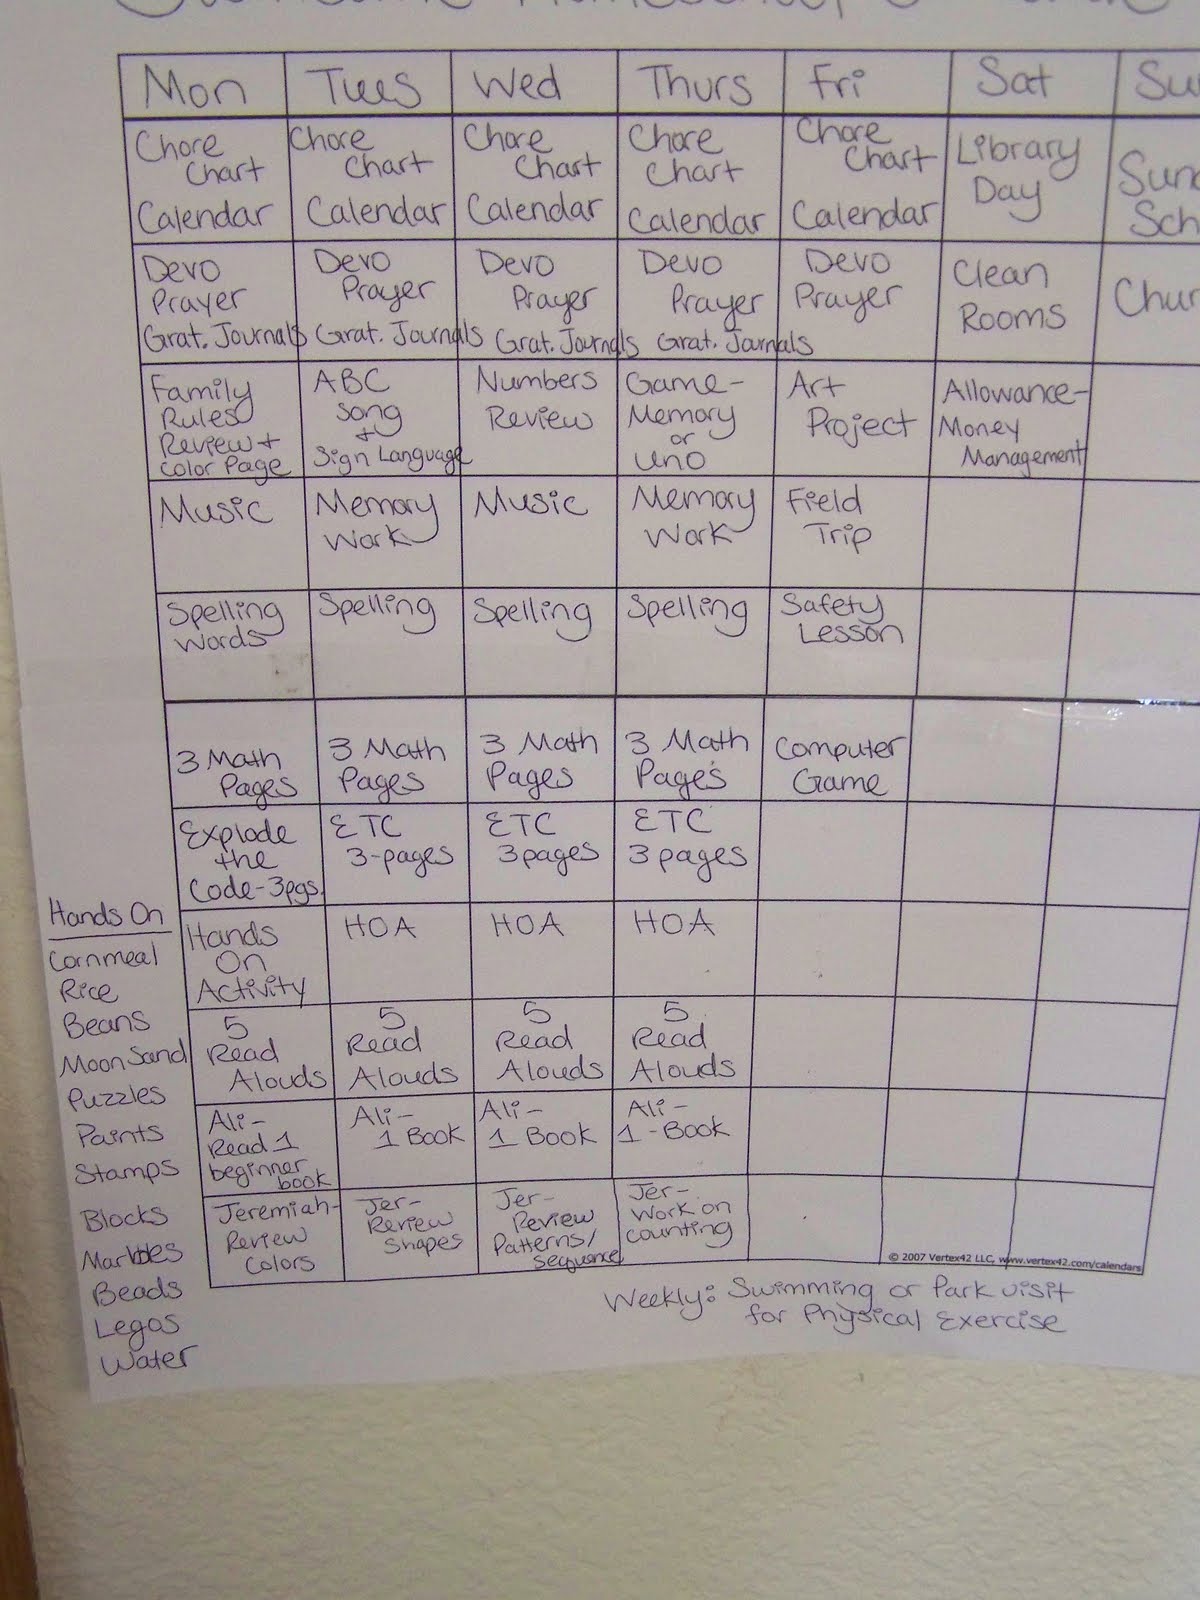 Mon Tues Wed Thurs Fri Sat
Chore Chart Calendar
Chore Chart Calendar
Chore Chart Calendar
Chore Chart Calendar
Chore Chart Calendar
Library Day
Devo Prayer Grat. Journals
Devo Prayer Grat. Journals
Devo Prayer Grat. Journals
Devo Prayer Grat. Journals
Devo Prayer
Clean Rooms
Family Rules Review + Color Page
ABC Song + Sign Language
Numbers Review
Game- Memory or Uno
Art Project
Allowance- Money Management
Music
Memory Work
Music
Memory Work
Field Trip
Spelling Words
Spelling
Spelling
Spelling
Safety Lesson
3 Math Pages
3 Math Pages
3 Math Pages
3 Math Pages
Computer Game
Explode the Code-3pgs.
ETC 3-pages
ETC 3pages
ETC 3 pages
Hands On Activity
HOA
HOA
HOA
5 Read Alouds
5 Read Alouds
5 Read Alouds
5 Read Alouds
Ali- Read 1 beginner book
Ali- 1 Book
Ali- 1 Book
Ali- 1-Book
Jeremiah- Review Colors
Jer- Review Shapes
Jer- Review Patterns/ sequence
Jer- Work on counting
© 2007 Vertex42 LLC, www.vertex42.com/calendars
Hands On
Cornmeal
Rice
Beans
Moon Sand
Puzzles
Paints
Stamps
Blocks
Marbles
Beads
Legos
Water
Weekly: Swimming or Park visit
for Physical Exercise